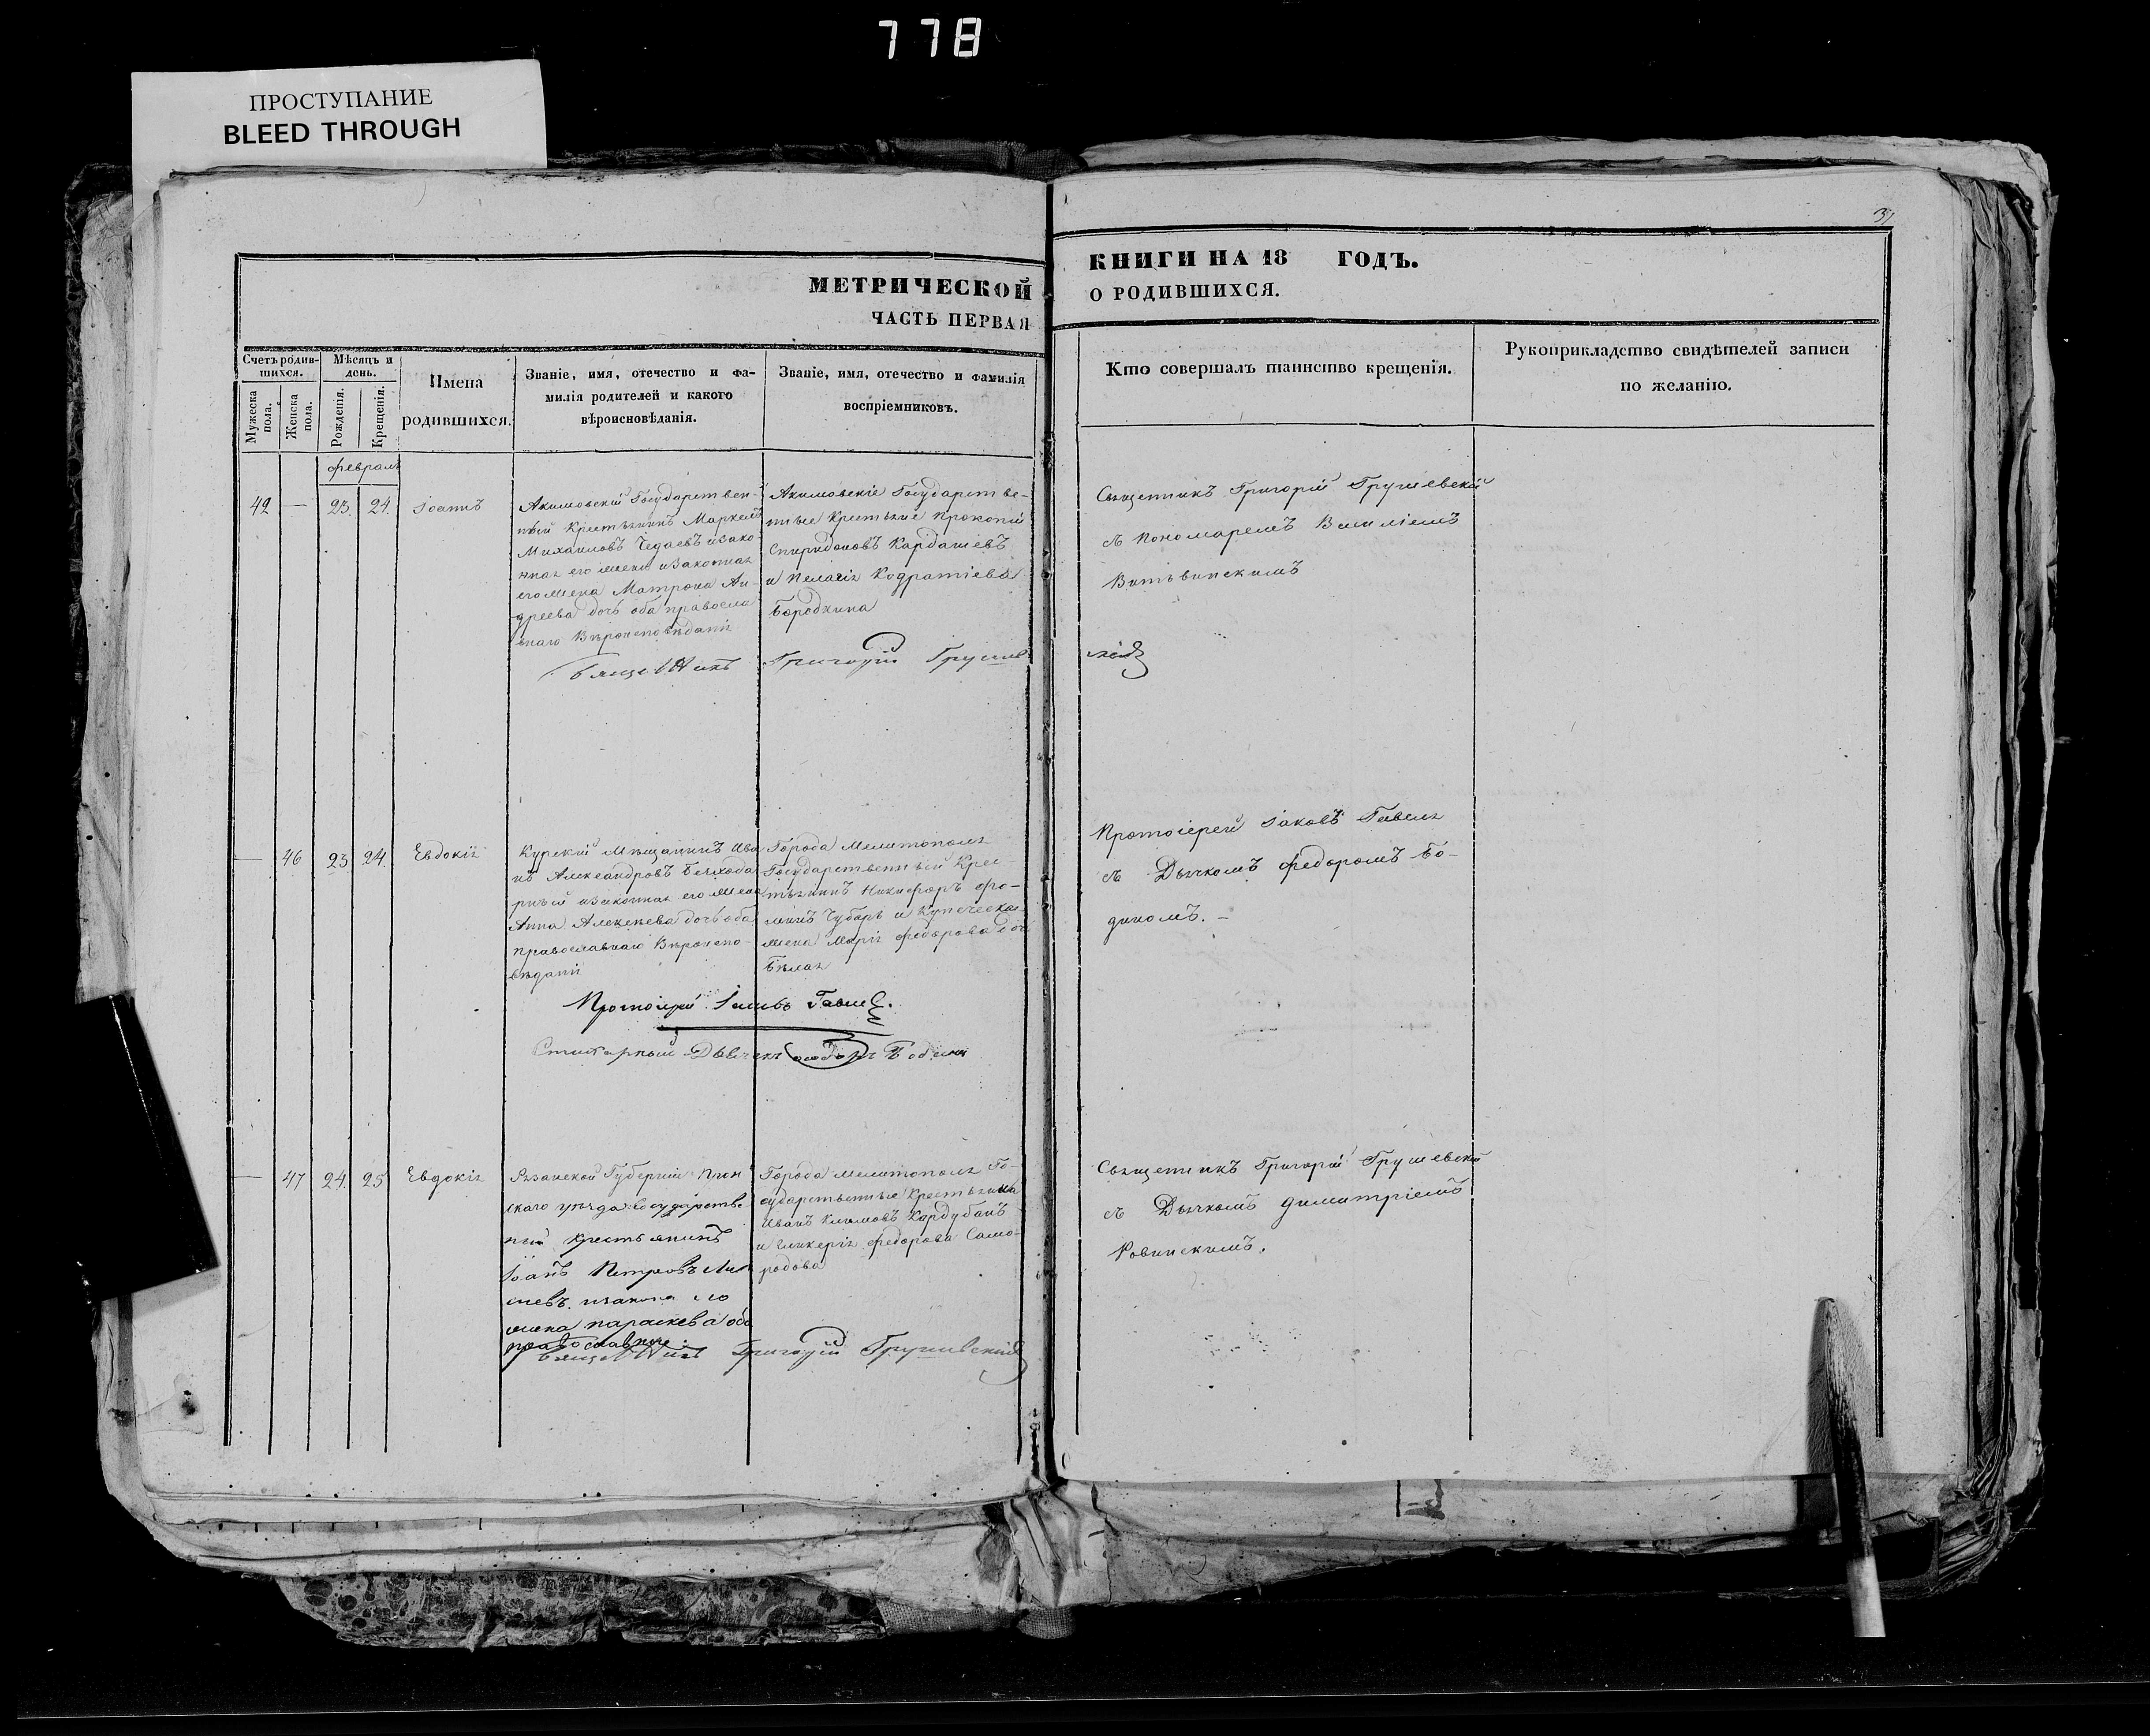 778
ПРОСТУПАНИЕ
BLEED THROUGH
31
МЕТРИЧЕСКОЙ
ЧАСТЬ ПЕРВАЯ
КНИГИ НА 18 ГОДЪ.
О РОДИВШИХСЯ.
Счетъ родив-
шихся.
Мужеска
пола.
Женска
пола.
Мѣсяцъ и
день.
Рожденія.
Крещенія.
Имена
родившихся.
Званіе, имя, отечество и фа-
милія родителей и какого
вѣроисповѣданія.
Званіе, имя, отечество и фамилія
воспріемниковъ.
Кто совершалъ таинство крещенія.
Рукоприкладство свидѣтелей записи
по желанію.
февраль
42 — 23. 24. Іоаннъ
Акимовскій Государствен-
ный Крестьянинъ Маркелъ
Михаиловъ Чедаевъ изако-
ная его жена изаконная
его жена Матрона Ан-
дреева дочь оба правосла
внаго Вѣроисповѣданія
Акимовскіе Государстве-
нные Крестьяне Прокопій
Спиридоновъ Кардашевъ
и Пелагія Кодратіева
Бородкина
Священникъ Григорій Грушевскій
съ Пономаремъ Василіемъ
Священникъ Григорій Грушев
скій
— 46 23 24. Евдокія
Курскій Мѣщанинъ Ива
нъ Александровъ
изаконная его жена
Анна Алексѣева дочь оба
православнаго Вѣроиспо-
вѣданія
Города Мелитополя
Государственный Крес-
тьянинъ Никифоръ Фо-
минъ Чубарь и Купеческая
жена Марія Федорова доч
Бѣлая
Протоіерей Іаковъ Гавел
съ Дьячкомъ Федоромъ Бо-
диномъ. –
Протоіерей Іаковъ
Дьячекъ Федоръ Бодин
— 47 24. 25 Евдокія
Рязанской Губерніи Прон
скаго уѣзда государстве
ный крестьянинъ
Іоанъ Петровъ
изаконная его
жена параскева оба
православные
Города Мелитополя Го-
сударственные Крестьяни
Иванъ Климовъ Кардубанъ
и Гликерія Федорова Само-
родова
Священникъ Григорій Грушевскій
съ Дьячкомъ Димитріемъ
Ровинскимъ.
Священникъ Григорій Грушевскій